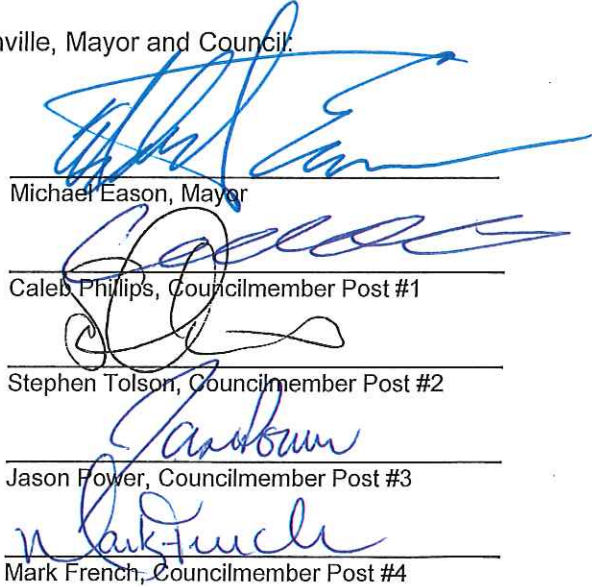 nville, Mayor and Council:
Michael Eason, Mayor
Caleb Phillips, Councilmember Post #1
Stephen Tolson, Councilmember Post #2
Jason Power, Councilmember Post #3
Mark French
Mark French, Councilmember Post #4